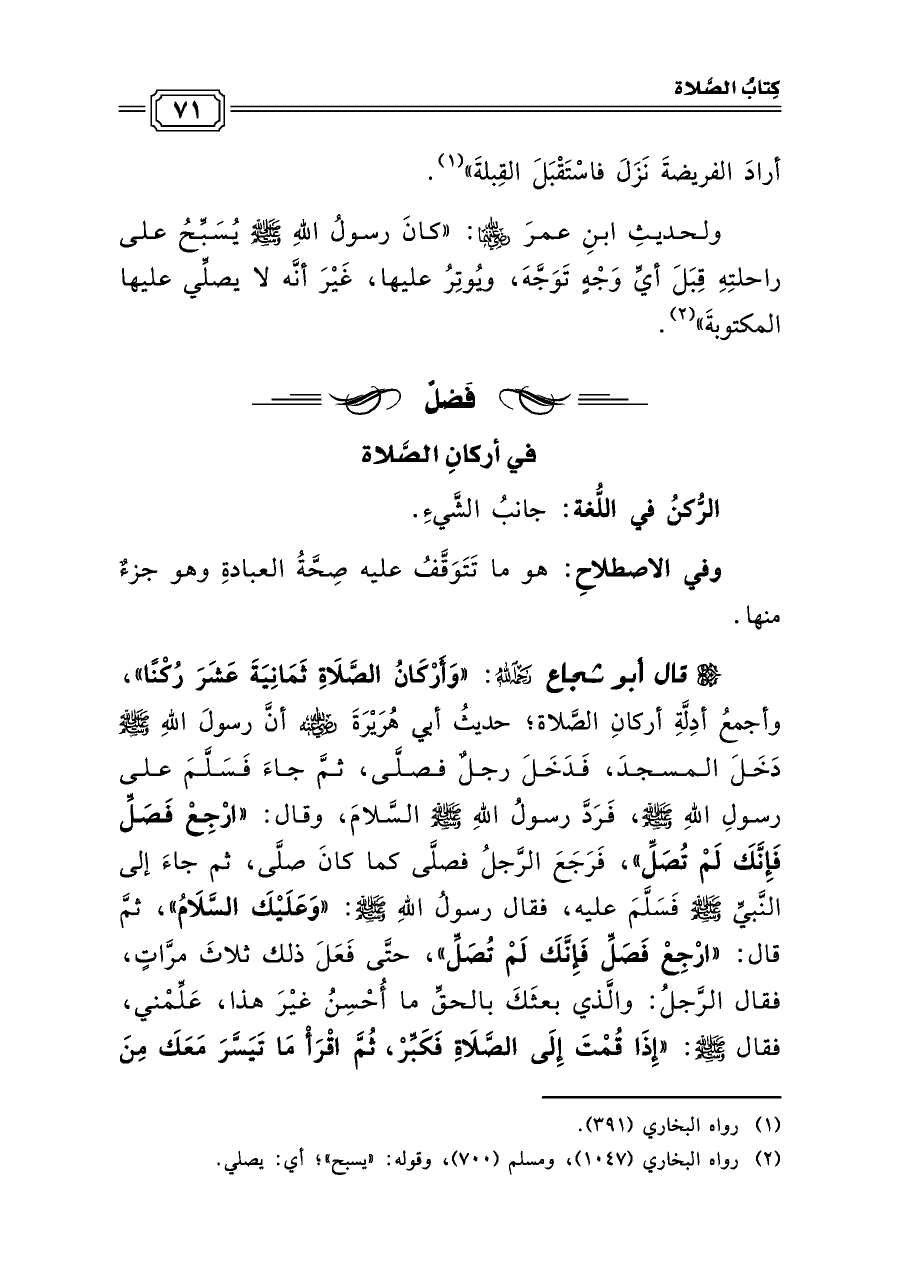 كِتابُ الصَّلاة
٧١
أرادَ الفريضةَ نَزَلَ فاسْتَقْبَلَ القِبلةَ»(١).
ولحديثِ ابنِ عمرَ ﵄: «كانَ رسولُ اللهِ ﷺ يُسَبِّحُ على
راحلتِهِ قِبَلَ أيِّ وَجْهٍ تَوَجَّهَ، ويُوتِرُ عليها، غَيْرَ أنَّه لا يصلِّي عليها
المكتوبةَ»(٢).
فَصْلٌ
في أركانِ الصَّلاة
الرُّكنُ في اللُّغة: جانبُ الشَّيءِ.
وفي الاصطلاحِ: هو ما تَتَوَقَّفُ عليه صِحَّةُ العبادةِ وهو جزءٌ
منها.
قال أبو شجاع ﵀: «وَأَرْكَانُ الصَّلَاةِ ثَمَانِيَةَ عَشَرَ رُكْنًا»،
وأجمعُ أدِلَّةِ أركانِ الصَّلاة؛ حديثُ أبي هُرَيْرَةَ ﵁ أنَّ رسولَ اللهِ ﷺ
دَخَلَ المسجدَ، فَدَخَلَ رجلٌ فصلَّى، ثمَّ جاءَ فَسَلَّمَ على
رسولِ اللهِ ﷺ، فَرَدَّ رسولُ اللهِ ﷺ السَّلامَ، وقال: «ارْجِعْ فَصَلِّ
فَإِنَّكَ لَمْ تُصَلِّ»، فَرَجَعَ الرَّجلُ فصلَّى كما كانَ صلَّى، ثم جاءَ إلى
النَّبيِّ ﷺ فَسَلَّمَ عليه، فقال رسولُ اللهِ ﷺ: «وَعَلَيْكَ السَّلَامُ»، ثمَّ
قال: «ارْجِعْ فَصَلِّ فَإِنَّكَ لَمْ تُصَلِّ»، حتَّى فَعَلَ ذلك ثلاثَ مرَّاتٍ،
فقال الرَّجلُ: والَّذي بعثَكَ بالحقِّ ما أُحْسِنُ غيْرَ هذا، عَلِّمْني،
فقال ﷺ: «إِذَا قُمْتَ إِلَى الصَّلَاةِ فَكَبِّرْ، ثُمَّ اقْرَأْ مَا تَيَسَّرَ مَعَكَ مِنَ
(١) رواه البخاري (٣٩١).
(٢) رواه البخاري (١٠٤٧)، ومسلم (٧٠٠)، وقوله: «يسبح»؛ أي: يصلي.